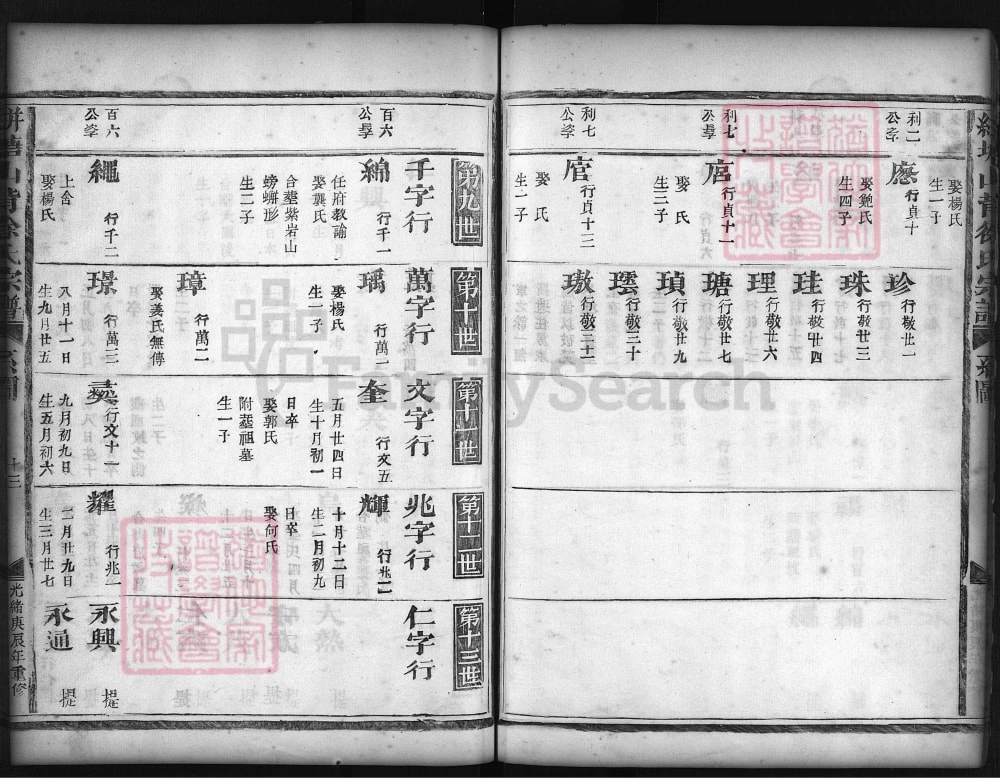 利二
公孛
應
行貞十
娶鮑氏
生四子
娶楊氏
生一子
利七
公孛
㝛
行貞十一
娶 氏
生三子
利七
公孛
㢙
行貞十二
娶 氏
生二子
珍
行敬廿一
珠
行敬廿三
珪
行敬廿四
理
行敬廿六
瑭
行敬廿七
瑱
行敬廿九
行敬三十
璈
行敬三十二
第九世
千字行
百六
公孛
綿
行千一
任府教諭
娶龔氏
合塟紫岩山
螃蠏形
生二子
百六
公孛
繩
行千二
上舍
娶楊氏
第十世
萬字行
瑀
行萬一
娶楊氏
生一子
璋
行萬二
娶姜氏無傳
璟
行萬三
八月十一日
生九月廿五
第十一世
文字行
奎
行文五
五月廿四日
生十月初一
日卒
娶郭氏
附塟祖墓
生一子
行文十一
九月初九日
生五月初六
第十二世
兆字行
輝
行兆二
十月十二日
生二月初九
日卒
娶何氏
耀
行兆一
二月廿九日
生三月廿七
第十三世
仁字行
永興
提
永通
提
徐氏宗譜
系圖
十三
光緒庚辰年重修
FamilySearch